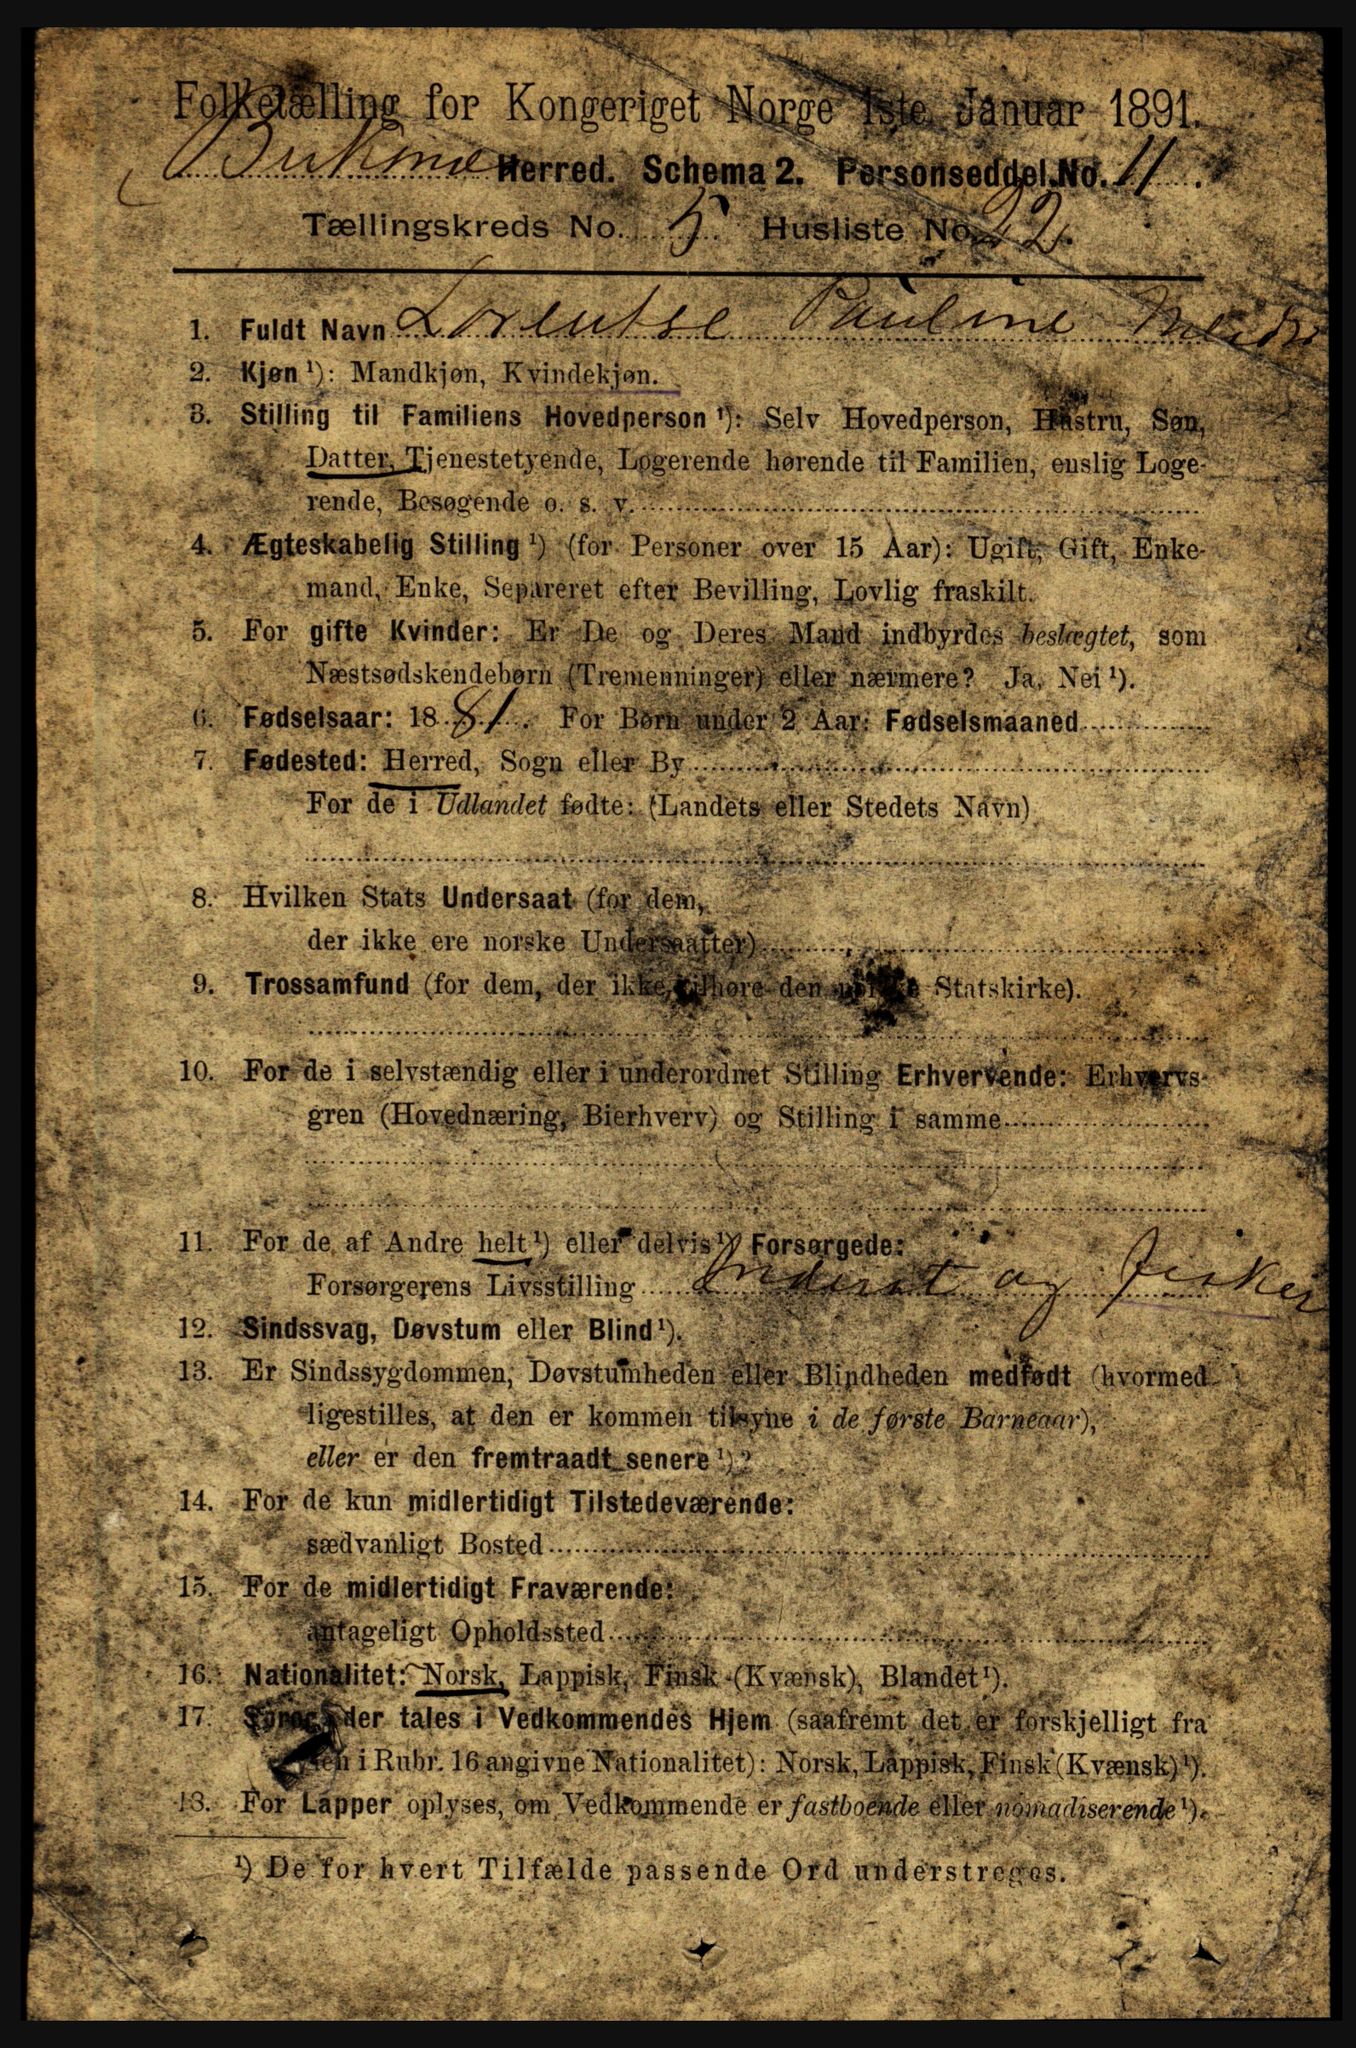 Folketælling for Kongeriget Norge 1ste Januar 1891.
Herred. Schema 2. Personseddel No. 11.
Tællingskreds No. 5 Husliste No. 22.
1. Fuldt Navn Lorentse Pauline
2. Kjøn ¹): Mandkjøn, Kvindekjøn.
3. Stilling til Familiens Hovedperson ¹): Selv Hovedperson, Hustru, Søn,
Datter, Tjenestetyende, Logerende hørende til Familien, enslig Loge-
rende, Besøgende o. s. v.
4. Ægteskabelig Stilling ¹) (for Personer over 15 Aar): Ugift, Gift, Enke-
mand, Enke, Separeret efter Bevilling, Lovlig fraskilt.
5. For gifte Kvinder: Er De og Deres Mand indbyrdes beslægtet, som
Næstsødskendebørn (Tremenninger) eller nærmere? Ja, Nei ¹).
6. Fødselsaar: 1881. For Børn under 2 Aar: Fødselsmaaned
7. Fødested: Herred, Sogn eller By
For de i Udlandet fødte: (Landets eller Stedets Navn)
8. Hvilken Stats Undersaat (for dem,
der ikke ere norske Undersaatter)
9. Trossamfund (for dem, der ikke tilhøre den norske Statskirke).
10. For de i selvstændig eller i underordnet Stilling Erhvervende: Erhvervs-
gren (Hovednæring, Bierhverv) og Stilling i samme
11. For de af Andre helt ¹) eller delvis ¹) Forsørgede:
Forsørgerens Livsstilling Inderst og Fisker
12. Sindssvag, Døvstum eller Blind ¹).
13. Er Sindssygdommen, Døvstumheden eller Blindheden medfødt (hvormed
ligestilles, at den er kommen tilsyne i de første Barneaar),
eller er den fremtraadt senere ¹)?
14. For de kun midlertidigt Tilstedeværende:
sædvanligt Bosted
15. For de midlertidigt Fraværende:
antageligt Opholdssted
16. Nationalitet: Norsk, Lappisk, Finsk (Kvænsk), Blandet ¹).
17. Sprog, der tales i Vedkommendes Hjem (saafremt det er forskjelligt fra
den i Rubr. 16 angivne Nationalitet): Norsk, Lappisk, Finsk (Kvænsk) ¹).
18. For Lapper oplyses, om Vedkommende er fastboende eller nomadiserende ¹).
¹) De for hvert Tilfælde passende Ord understreges.